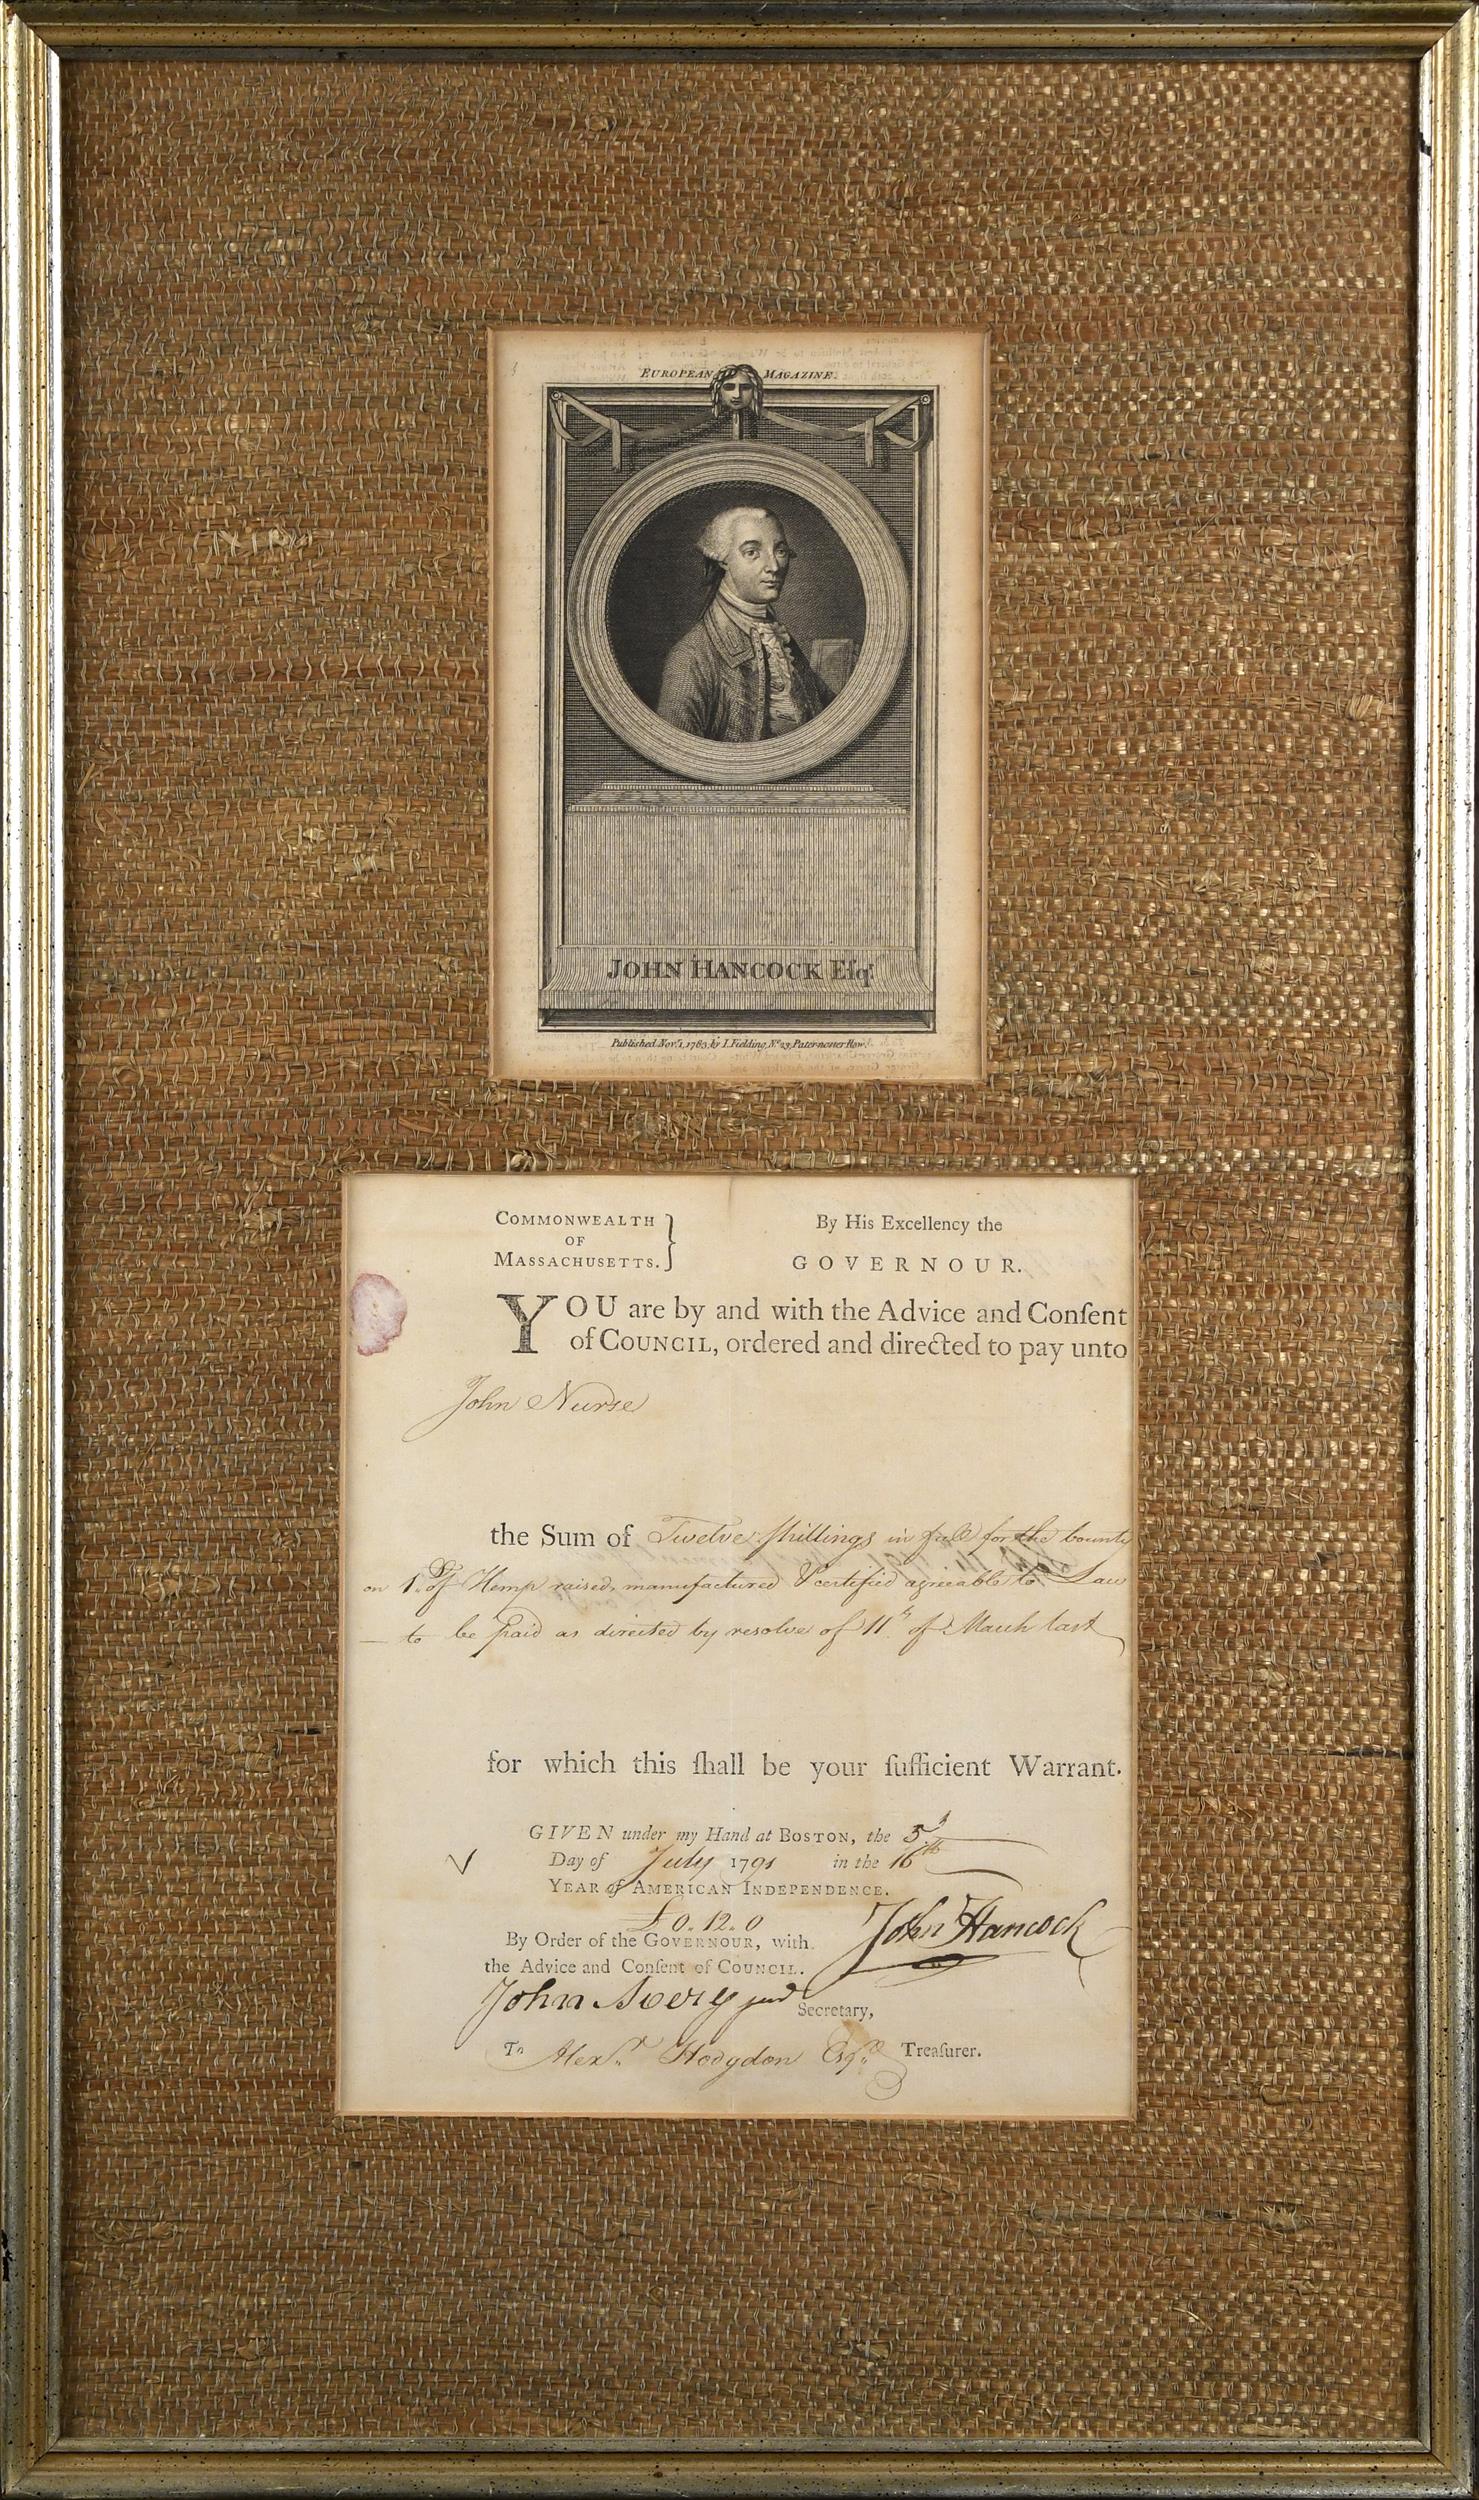 EUROPEAN MAGAZINE.
JOHN HANCOCK Eſqr.
Published Novr. 1, 1783, by I. Fielding, No. 23, Paternoster Row.
COMMONWEALTH
OF
MASSACHUSETTS. }
By His Excellency the
GOVERNOUR.
YOU are by and with the Advice and Conſent
of COUNCIL, ordered and directed to pay unto
John Nurse
the Sum of Twelve ſhillings in full for the bounty
on 1 of Hemp raised, manufactured & certified agreeable to Law
— to be paid as directed by resolve of 11th of March last
for which this ſhall be your ſufficient Warrant.
GIVEN under my Hand at BOSTON, the 5
Day of July 1791 in the 16th
YEAR of AMERICAN INDEPENDENCE.
£0.12.0
By Order of the GOVERNOUR, with
the Advice and Conſent of COUNCIL.
John Hancock
John Avery junr Secretary,
To Alexr. Hodgdon Esqr. Treaſurer.